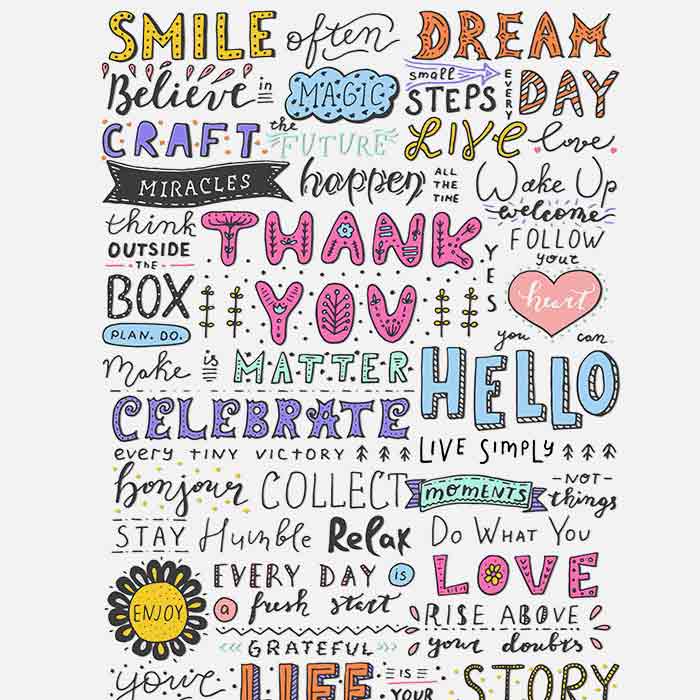 SMILE often DREAM
Believe in MAGIC small STEPS EVERY DAY
CRAFT the FUTURE LIVE love
MIRACLES happen ALL THE TIME Wake Up
welcome
think OUTSIDE THE BOX
THANK YOU
YES
FOLLOW your heart
PLAN. DO.
you can
Make is MATTER
HELLO
CELEBRATE
every TINY VICTORY
LIVE SIMPLY
bonjour COLLECT MOMENTS -NOT- things
STAY Humble Relax Do What You LOVE
ENJOY
EVERY DAY is a fresh start
RISE ABOVE your doubts
<<< GRATEFUL >>>
your LIFE =IS= YOUR STORY